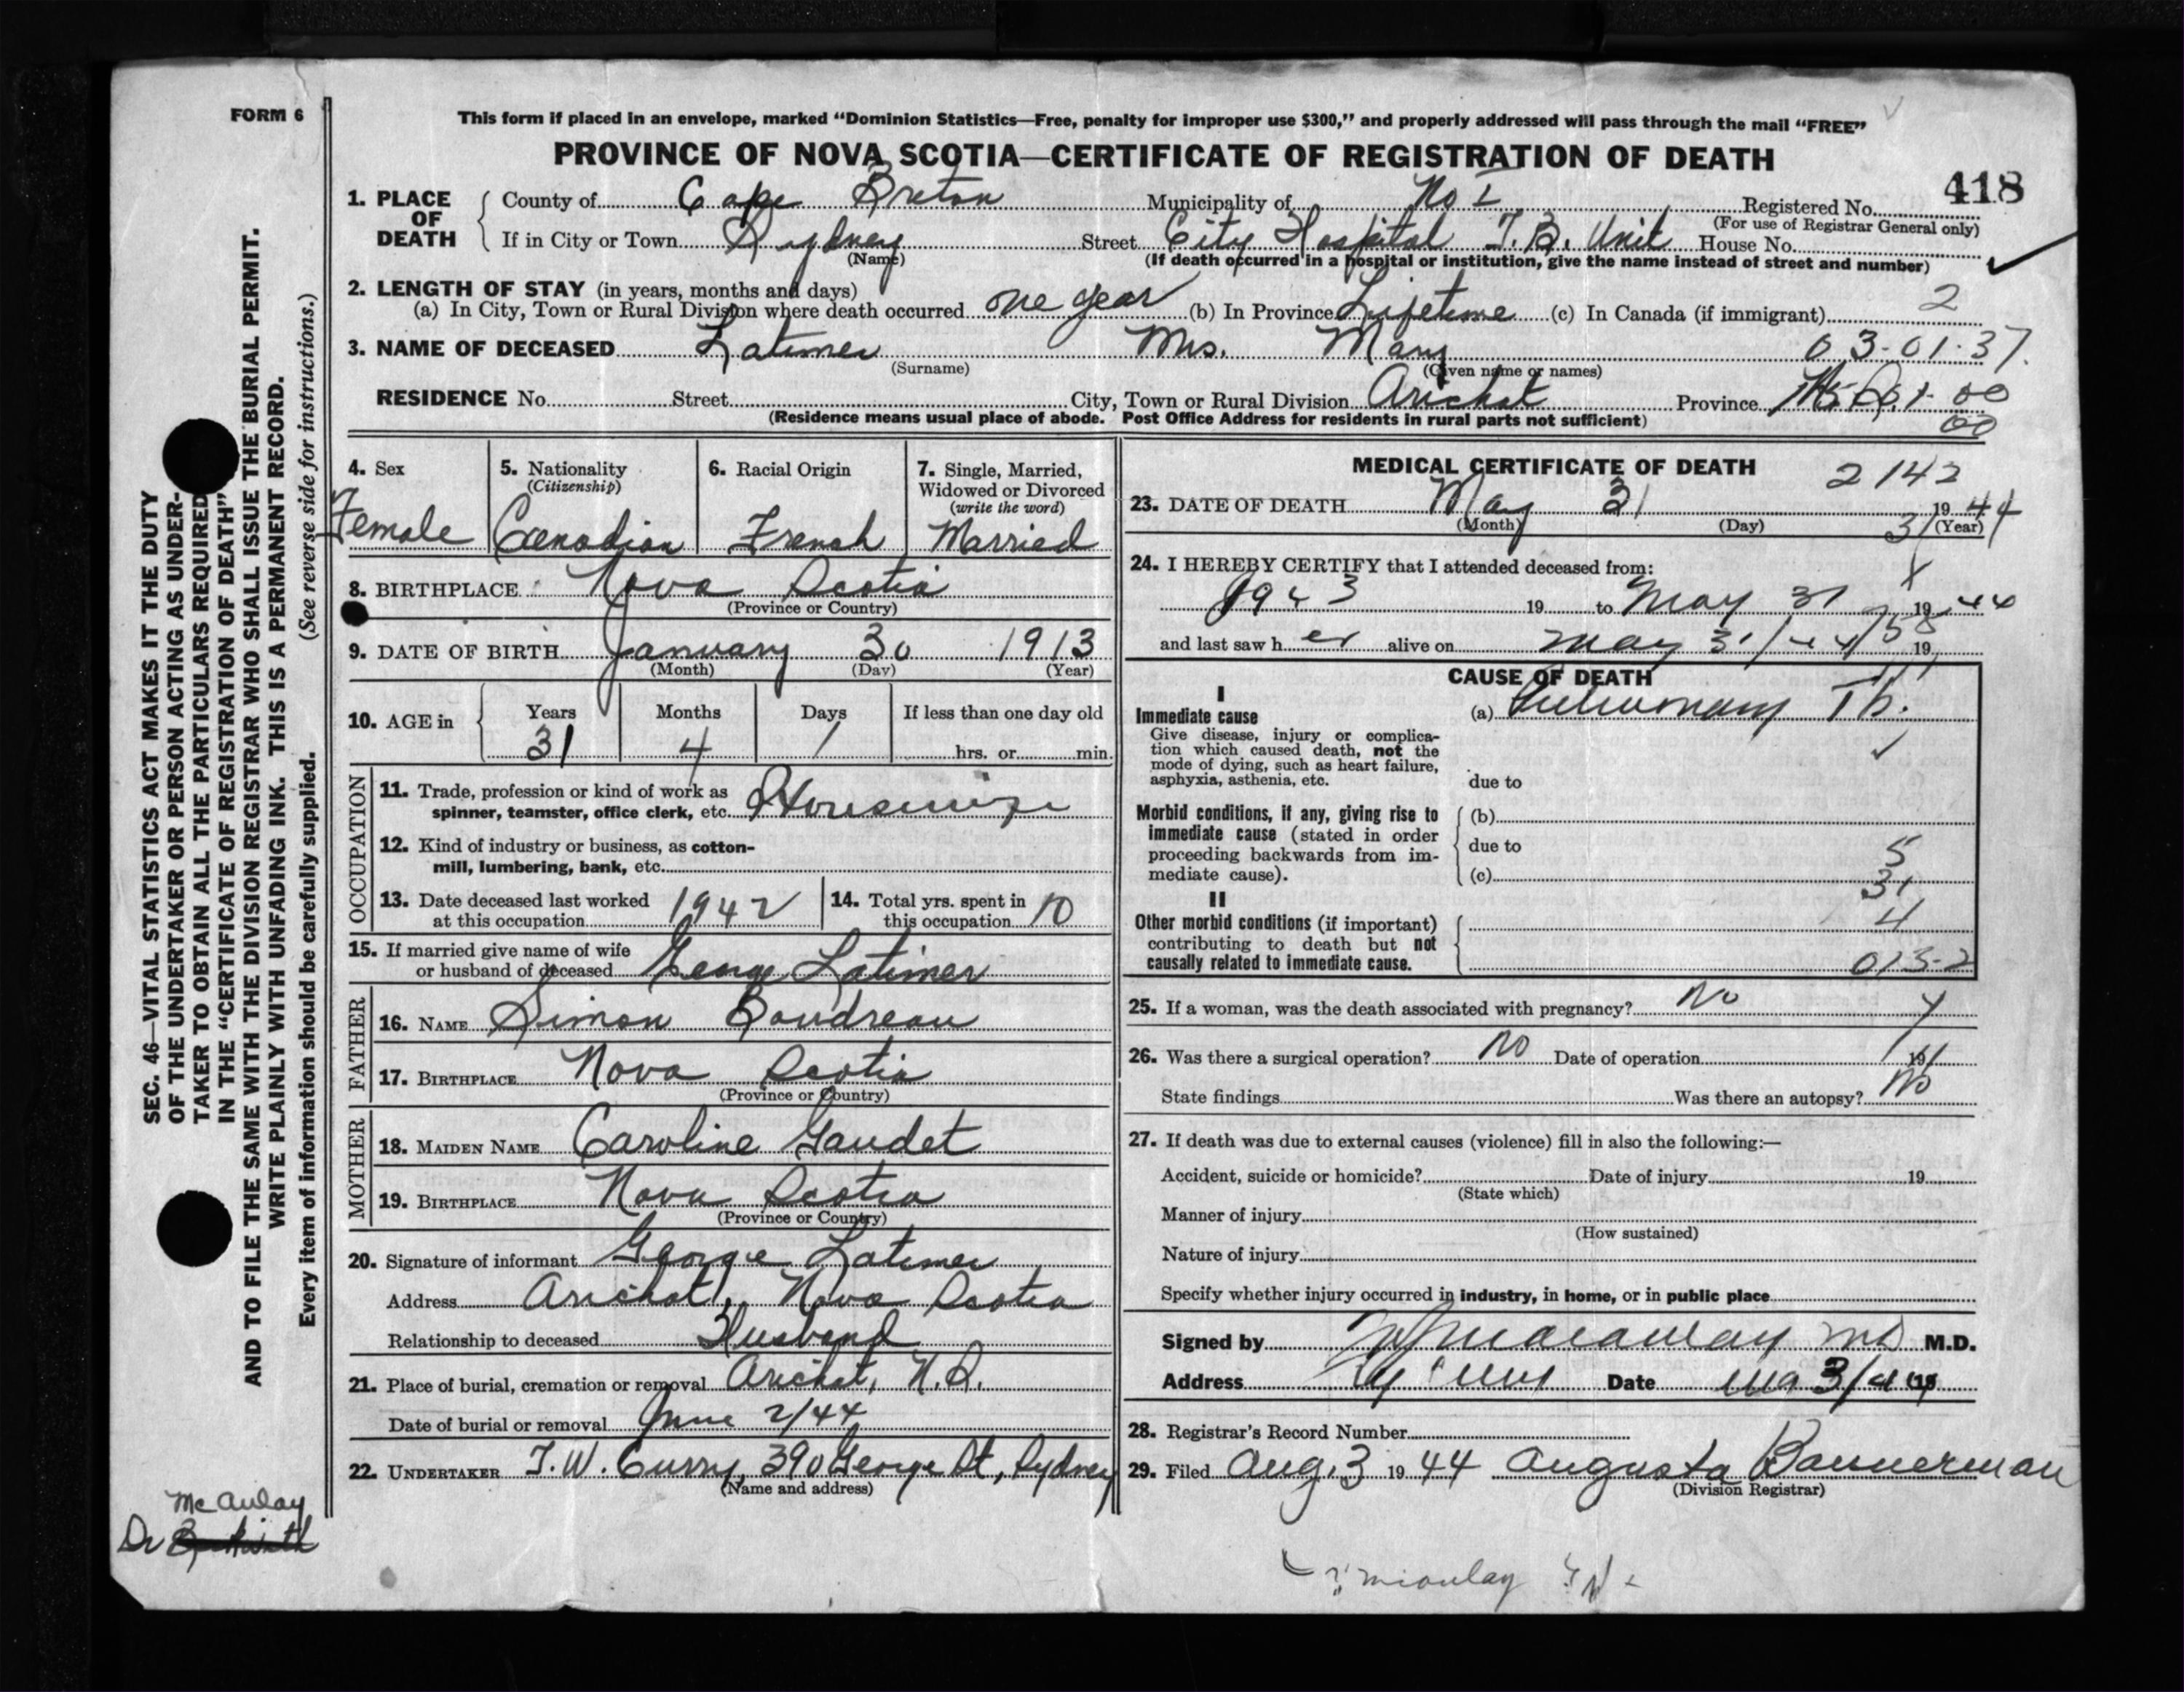 FORM 6
This form if placed in an envelope, marked "Dominion Statistics—Free, penalty for improper use $300," and properly addressed will pass through the mail "FREE"
PROVINCE OF NOVA SCOTIA—CERTIFICATE OF REGISTRATION OF DEATH
418
1. PLACE OF DEATH County of Cape Breton Municipality of No I Registered No.
(For use of Registrar General only)
If in City or Town Sydney Street City Hospital T.B. Unit House No.
(Name) (If death occurred in a hospital or institution, give the name instead of street and number)
2. LENGTH OF STAY (in years, months and days)
(a) In City, Town or Rural Division where death occurred one year (b) In Province Lifetime (c) In Canada (if immigrant) 2
3. NAME OF DECEASED Latimer Mrs. Mary 03-01-37.
(Surname) (Given name or names)
RESIDENCE No. Street City, Town or Rural Division Arichat Province 00
(Residence means usual place of abode. Post Office Address for residents in rural parts not sufficient) 00
4. Sex
Female
5. Nationality
(Citizenship)
Canadian
6. Racial Origin
French
7. Single, Married, Widowed or Divorced
(write the word)
Married
8. BIRTHPLACE Nova Scotia
(Province or Country)
9. DATE OF BIRTH January 30 1913
(Month) (Day) (Year)
10. AGE in Years Months Days If less than one day old
31 4 1 hrs. or min.
OCCUPATION
11. Trade, profession or kind of work as
spinner, teamster, office clerk, etc. Housewife
12. Kind of industry or business, as cotton-
mill, lumbering, bank, etc.
13. Date deceased last worked
at this occupation 1942
14. Total yrs. spent in
this occupation 10
15. If married give name of wife
or husband of deceased George Latimer
FATHER
16. NAME Simon Boudreau
17. BIRTHPLACE Nova Scotia
(Province or Country)
MOTHER
18. MAIDEN NAME Caroline Gaudet
19. BIRTHPLACE Nova Scotia
(Province or Country)
20. Signature of informant George Latimer
Address Arichat, Nova Scotia
Relationship to deceased Husband
21. Place of burial, cremation or removal Arichat, N.S.
Date of burial or removal June 2/44
22. UNDERTAKER T.W. Curry, 390 George St, Sydney
(Name and address)
MEDICAL CERTIFICATE OF DEATH 2142
23. DATE OF DEATH May 31 1944
(Month) (Day) (Year)
31
24. I HEREBY CERTIFY that I attended deceased from:
1943 19 to May 31 1944
and last saw her alive on May 31/44 19
CAUSE OF DEATH
I
Immediate cause
(a) Pulmonary Tb.
Give disease, injury or complica-
tion which caused death, not the
mode of dying, such as heart failure,
asphyxia, asthenia, etc.
due to
Morbid conditions, if any, giving rise to
immediate cause (stated in order
proceeding backwards from im-
mediate cause).
(b)
due to
5
(c)
31
II
Other morbid conditions (if important)
contributing to death but not
causally related to immediate cause.
4
013-2
25. If a woman, was the death associated with pregnancy? No
26. Was there a surgical operation? No Date of operation 19
State findings Was there an autopsy? No
27. If death was due to external causes (violence) fill in also the following:—
Accident, suicide or homicide? Date of injury 19
(State which)
Manner of injury
(How sustained)
Nature of injury
Specify whether injury occurred in industry, in home, or in public place
Signed by Macaulay MD M.D.
Address Date 3/44 19
28. Registrar's Record Number
29. Filed Aug. 3 1944 Augusta Bannerman
(Division Registrar)
SEC. 46—VITAL STATISTICS ACT MAKES IT THE DUTY
OF THE UNDERTAKER OR PERSON ACTING AS UNDER-
TAKER TO OBTAIN ALL THE PARTICULARS REQUIRED
IN THE "CERTIFICATE OF REGISTRATION OF DEATH"
AND TO FILE THE SAME WITH THE DIVISION REGISTRAR WHO SHALL ISSUE THE BURIAL PERMIT.
WRITE PLAINLY WITH UNFADING INK. THIS IS A PERMANENT RECORD.
Every item of information should be carefully supplied. (See reverse side for instructions.)
McAulay
Dr